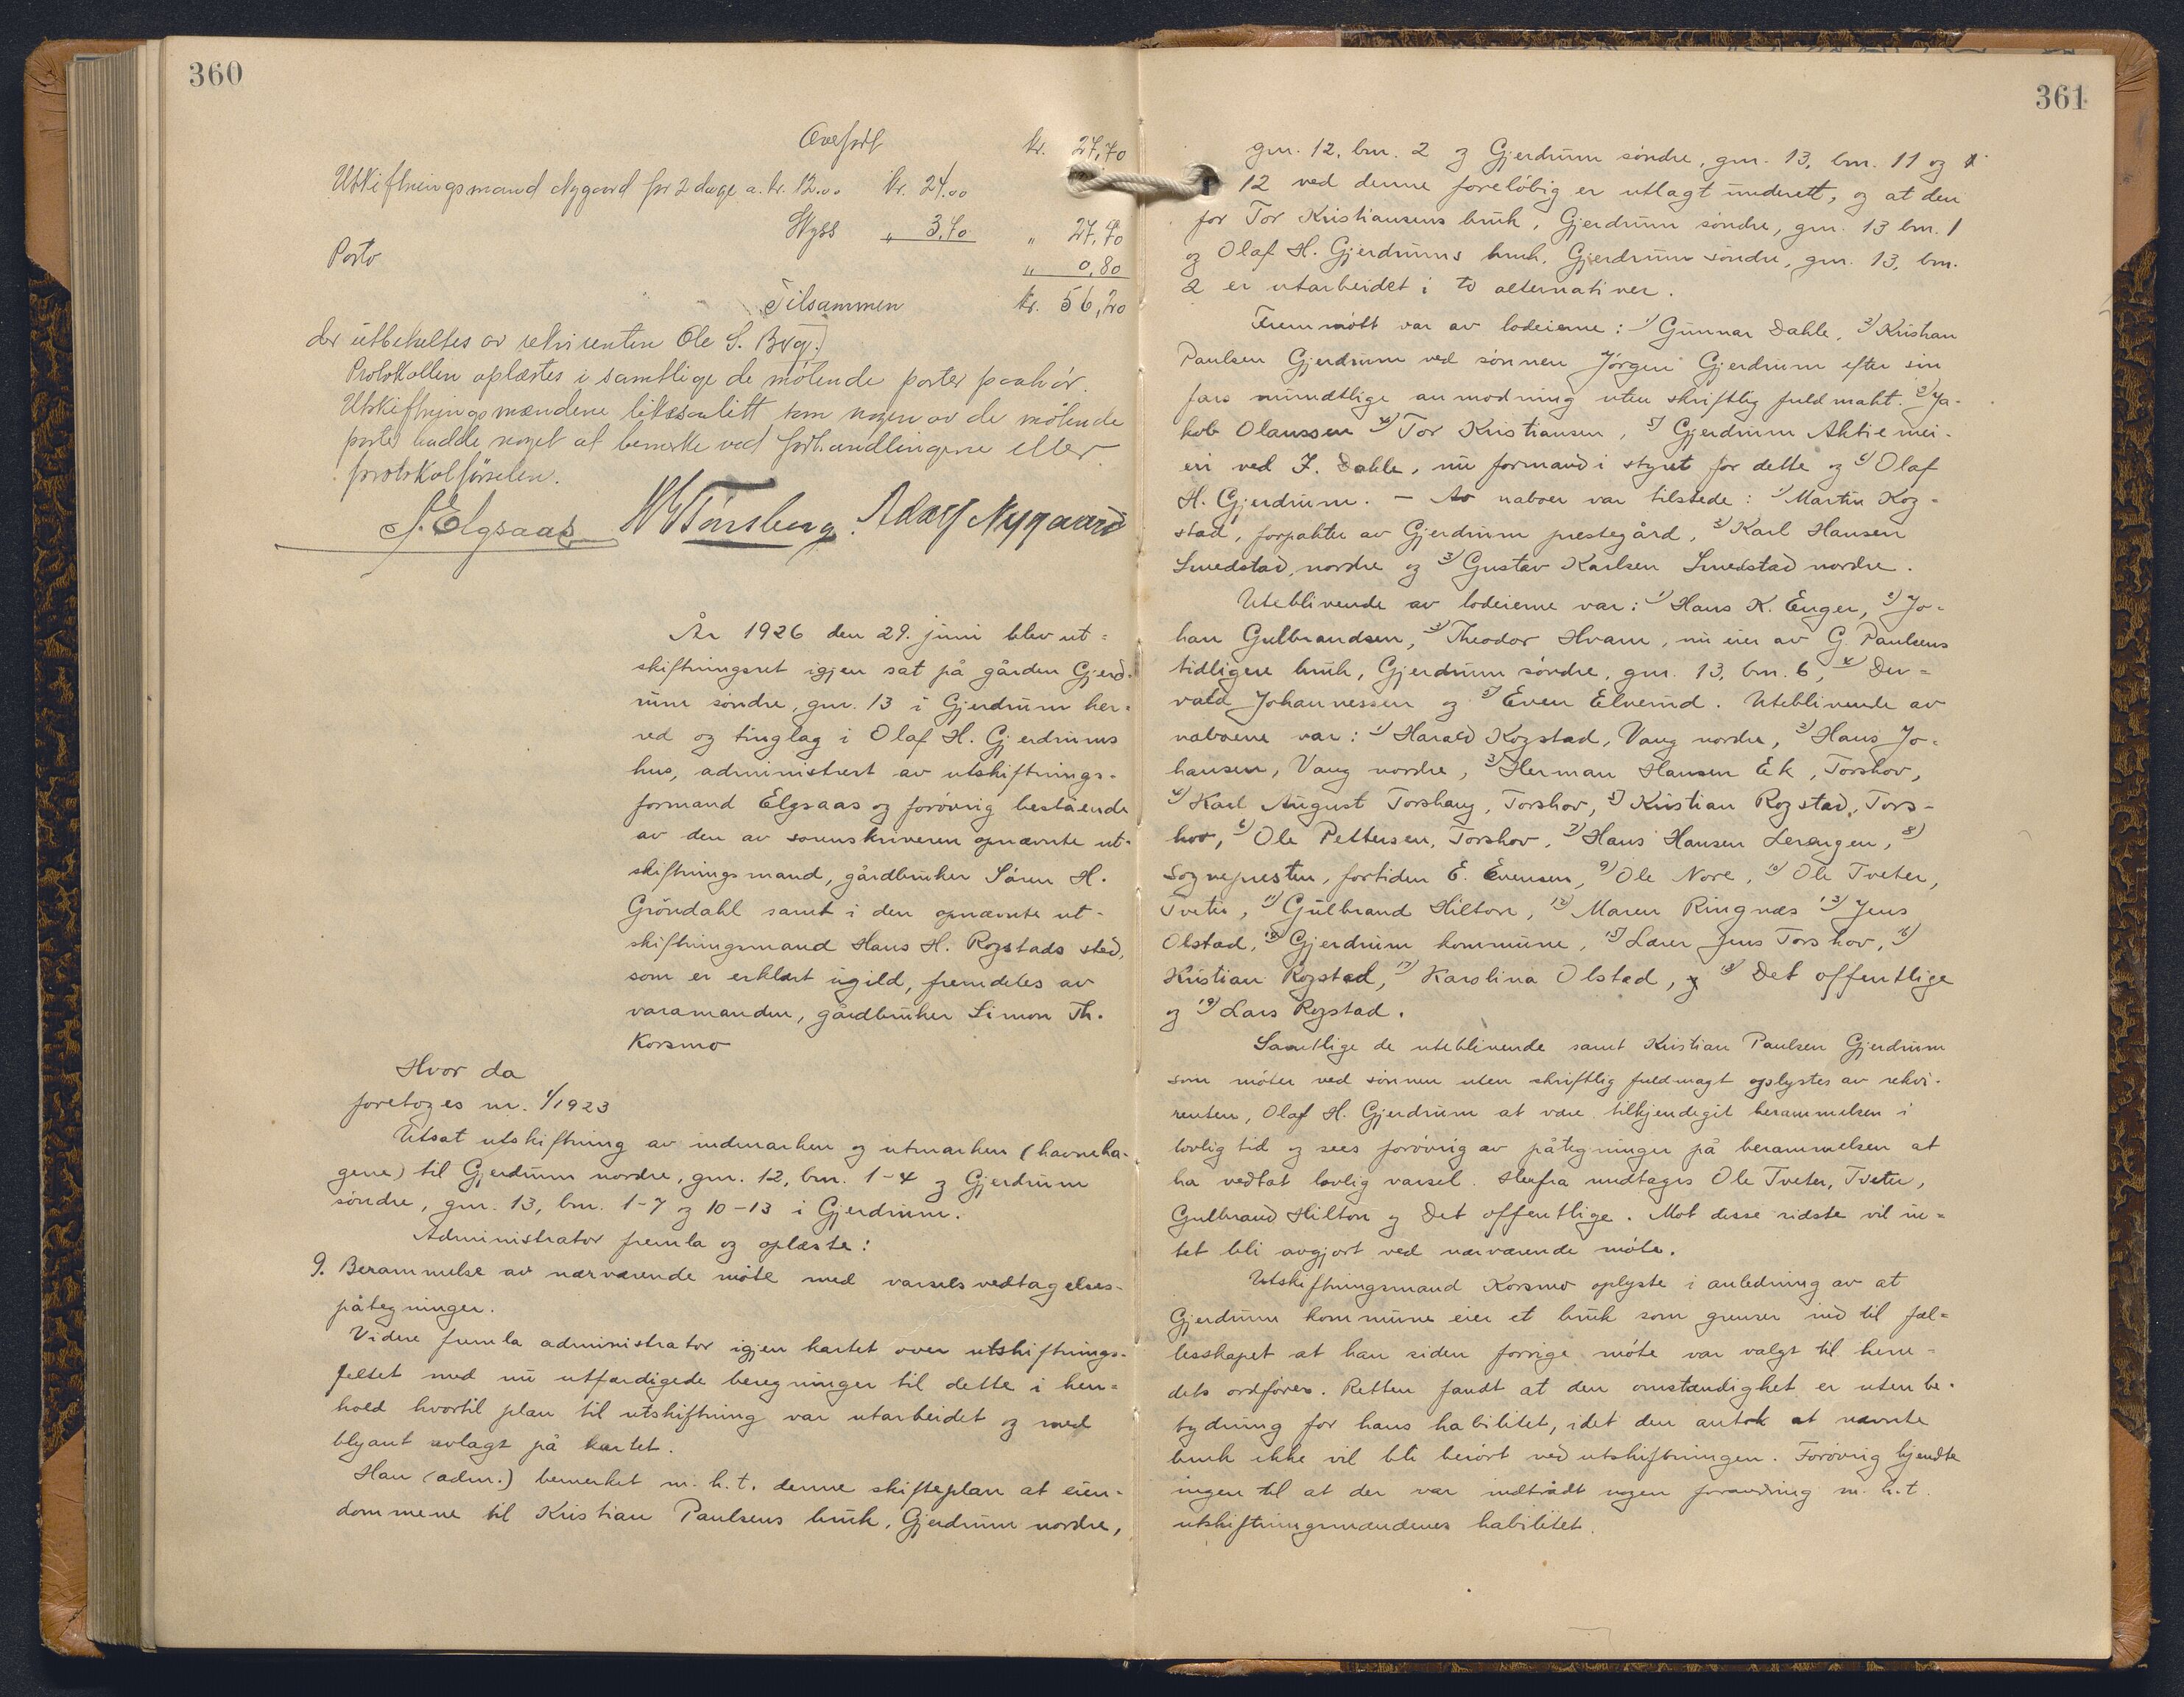 360
Overført kr. 27,70
Utskiftningsmand Nygaard for 2 dage a. kr. 12.00 kr. 24.00
Skyss " 3,70 " 27,70
Porto " 0,80
Tilsammen kr. 56,20
der utbetaltes av rekvirenten Ole S. Bryg.
Protokollen oplæstes i samtlige de møtende parter paahør.
Utskiftningsmændene likesaalitt som nogen av de møtende
parter hadde noget at bemerke ved forhandlingene eller
protokolførselen.
S. Elgsaas Tønsberg. Adolf Nygaard
År 1926 den 29. juni blev ut=
skiftningsret igjen sat på gården Gjerd-
rum søndre, gnr. 13 i Gjerdrum her=
red og tinglag i Olaf H. Gjerdrums
hus, administrert av utskiftnings-
formand Elgsaas og forøvrig bestående
av den av sorenskriveren opnævnte ut-
skiftningsmand, gårdbruker Søren H.
Grøndahl samt i den opnævnte ut-
skiftningsmand Hans H. Rogstads sted,
som er erklært ugild, fremdeles av
varamanden, gårdbruker Simon Th.
Korsmo
Hvor da
foretoges nr. 1/1923
Utsat utskiftning av indmarken og utmarken (havneha-
gene) til Gjerdrum nordre, gnr. 12, bnr. 1-4 og Gjerdrum
søndre, gnr. 13, bnr. 1-7 og 10-13 i Gjerdrum.
Administrator fremla og oplæste:
9. Berammelse av nærværende møte med varselsvedtagelses-
påtegninger.
Videre fremla administrator igjen kartet over utskiftnings-
feltet med nu utfærdigede beregninger til dette i hen=
hold hvortil plan til utskiftning var utarbeidet og med
blyant avlagt på kartet.
Han (adm.) bemerket m. h. t. denne skifteplan at eien-
dommene til Kristian Paulsens bruk, Gjerdrum nordre,
361
gnr. 12, bnr. 2 og Gjerdrum søndre, gnr. 13, bnr. 11 og
12 ved denne foreløbig er utlagt underett, og at den
for Tor Kristiansens bruk, Gjerdrum søndre, gnr. 13 bnr. 1
og Olaf H. Gjerdrums bruk, Gjerdrum søndre, gnr. 13, bnr.
2 er utarbeidet i to alternativer.
Fremmøtt var av lodeierne: 1) Gunnar Dahle, 2) Kristian
Paulsen Gjerdrum ved sønnen Jørgen Gjerdrum efter sin
fars mundtlige anmodning uten skriftlig fuldmakt. 3) Ja-
kob Olaussen 4) Tor Kristiansen, 5) Gjerdrum Aktiemei-
eri ved J. Dahle, nu formand i styret for dette og 6) Olaf
H. Gjerdrum. - Av naboer var tilstede: 1) Martin Rog-
stad, forpakter av Gjerdrum prestegård, 2) Karl Hansen
Smedstad, nordre og 3) Gustav Karlsen Smedstad nordre.
Uteblivende av lodeierne var: 1) Hans K. Enger, 2) Jo-
han Gulbrandsen, 3) Theodor Hvam, nu eier av G. Paulsens
tidligere bruk, Gjerdrum søndre, gnr. 13, bnr. 6, 4) Der-
vald Johannessen og 5) Even Elverud. Uteblivende av
naboene var: 1) Harald Rogstad, Vaug nordre, 2) Hans Jo-
hansen, Vaug nordre, 3) Herman Hansen Ek, Torshov,
4) Karl August Torshaug, Torshov, 5) Kristian Rogstad, Tors-
hov, 6) Ole Pettersen, Torshov, 7) Hans Hansen Lerangen, 8)
Sognepresten, fortiden E. Evensen, 9) Ole Nore, 10) Ole Tveter,
Tveter, 11) Gulbrand Hilton, 12) Maren Ringnæs 13) Jens
Olstad, 14) Gjerdrum kommune, 15) Lærer Jens Torshov, 16)
Kristian Rogstad, 17) Karolina Olstad, 18) Det offentlige
og 19) Lars Rogstad.
Samtlige de uteblivende samt Kristian Paulsen Gjerdrum
som møter ved sønnen uten skriftlig fuldmagt oplystes av rekvi-
renten, Olaf H. Gjerdrum at være tilkjendegit berammelsen i
lovlig tid og sees forøvrig av påtegninger på berammelsen at
ha vedtat lovlig varsel. Herfra undtages Ole Tveter, Tveter,
Gulbrand Hilton og Det offentlige. Mot disse sidste vil in-
tet bli avgjort ved nærværende møte.
Utskiftningsmand Korsmo oplyste i anledning av at
Gjerdrum kommune eier et bruk som grenser ind til fæl-
lesskapet at han siden forrige møte var valgt til herre-
dets ordfører. Retten fandt at den omstændighet er uten be-
tydning for hans habilitet, idet den antok at nævnte
bruk ikke vil bli berørt ved utskiftningen. Forøvrig kjendte
ingen til at der var indtrådt nogen forandring m. h. t.
utskiftningsmændenes habilitet.